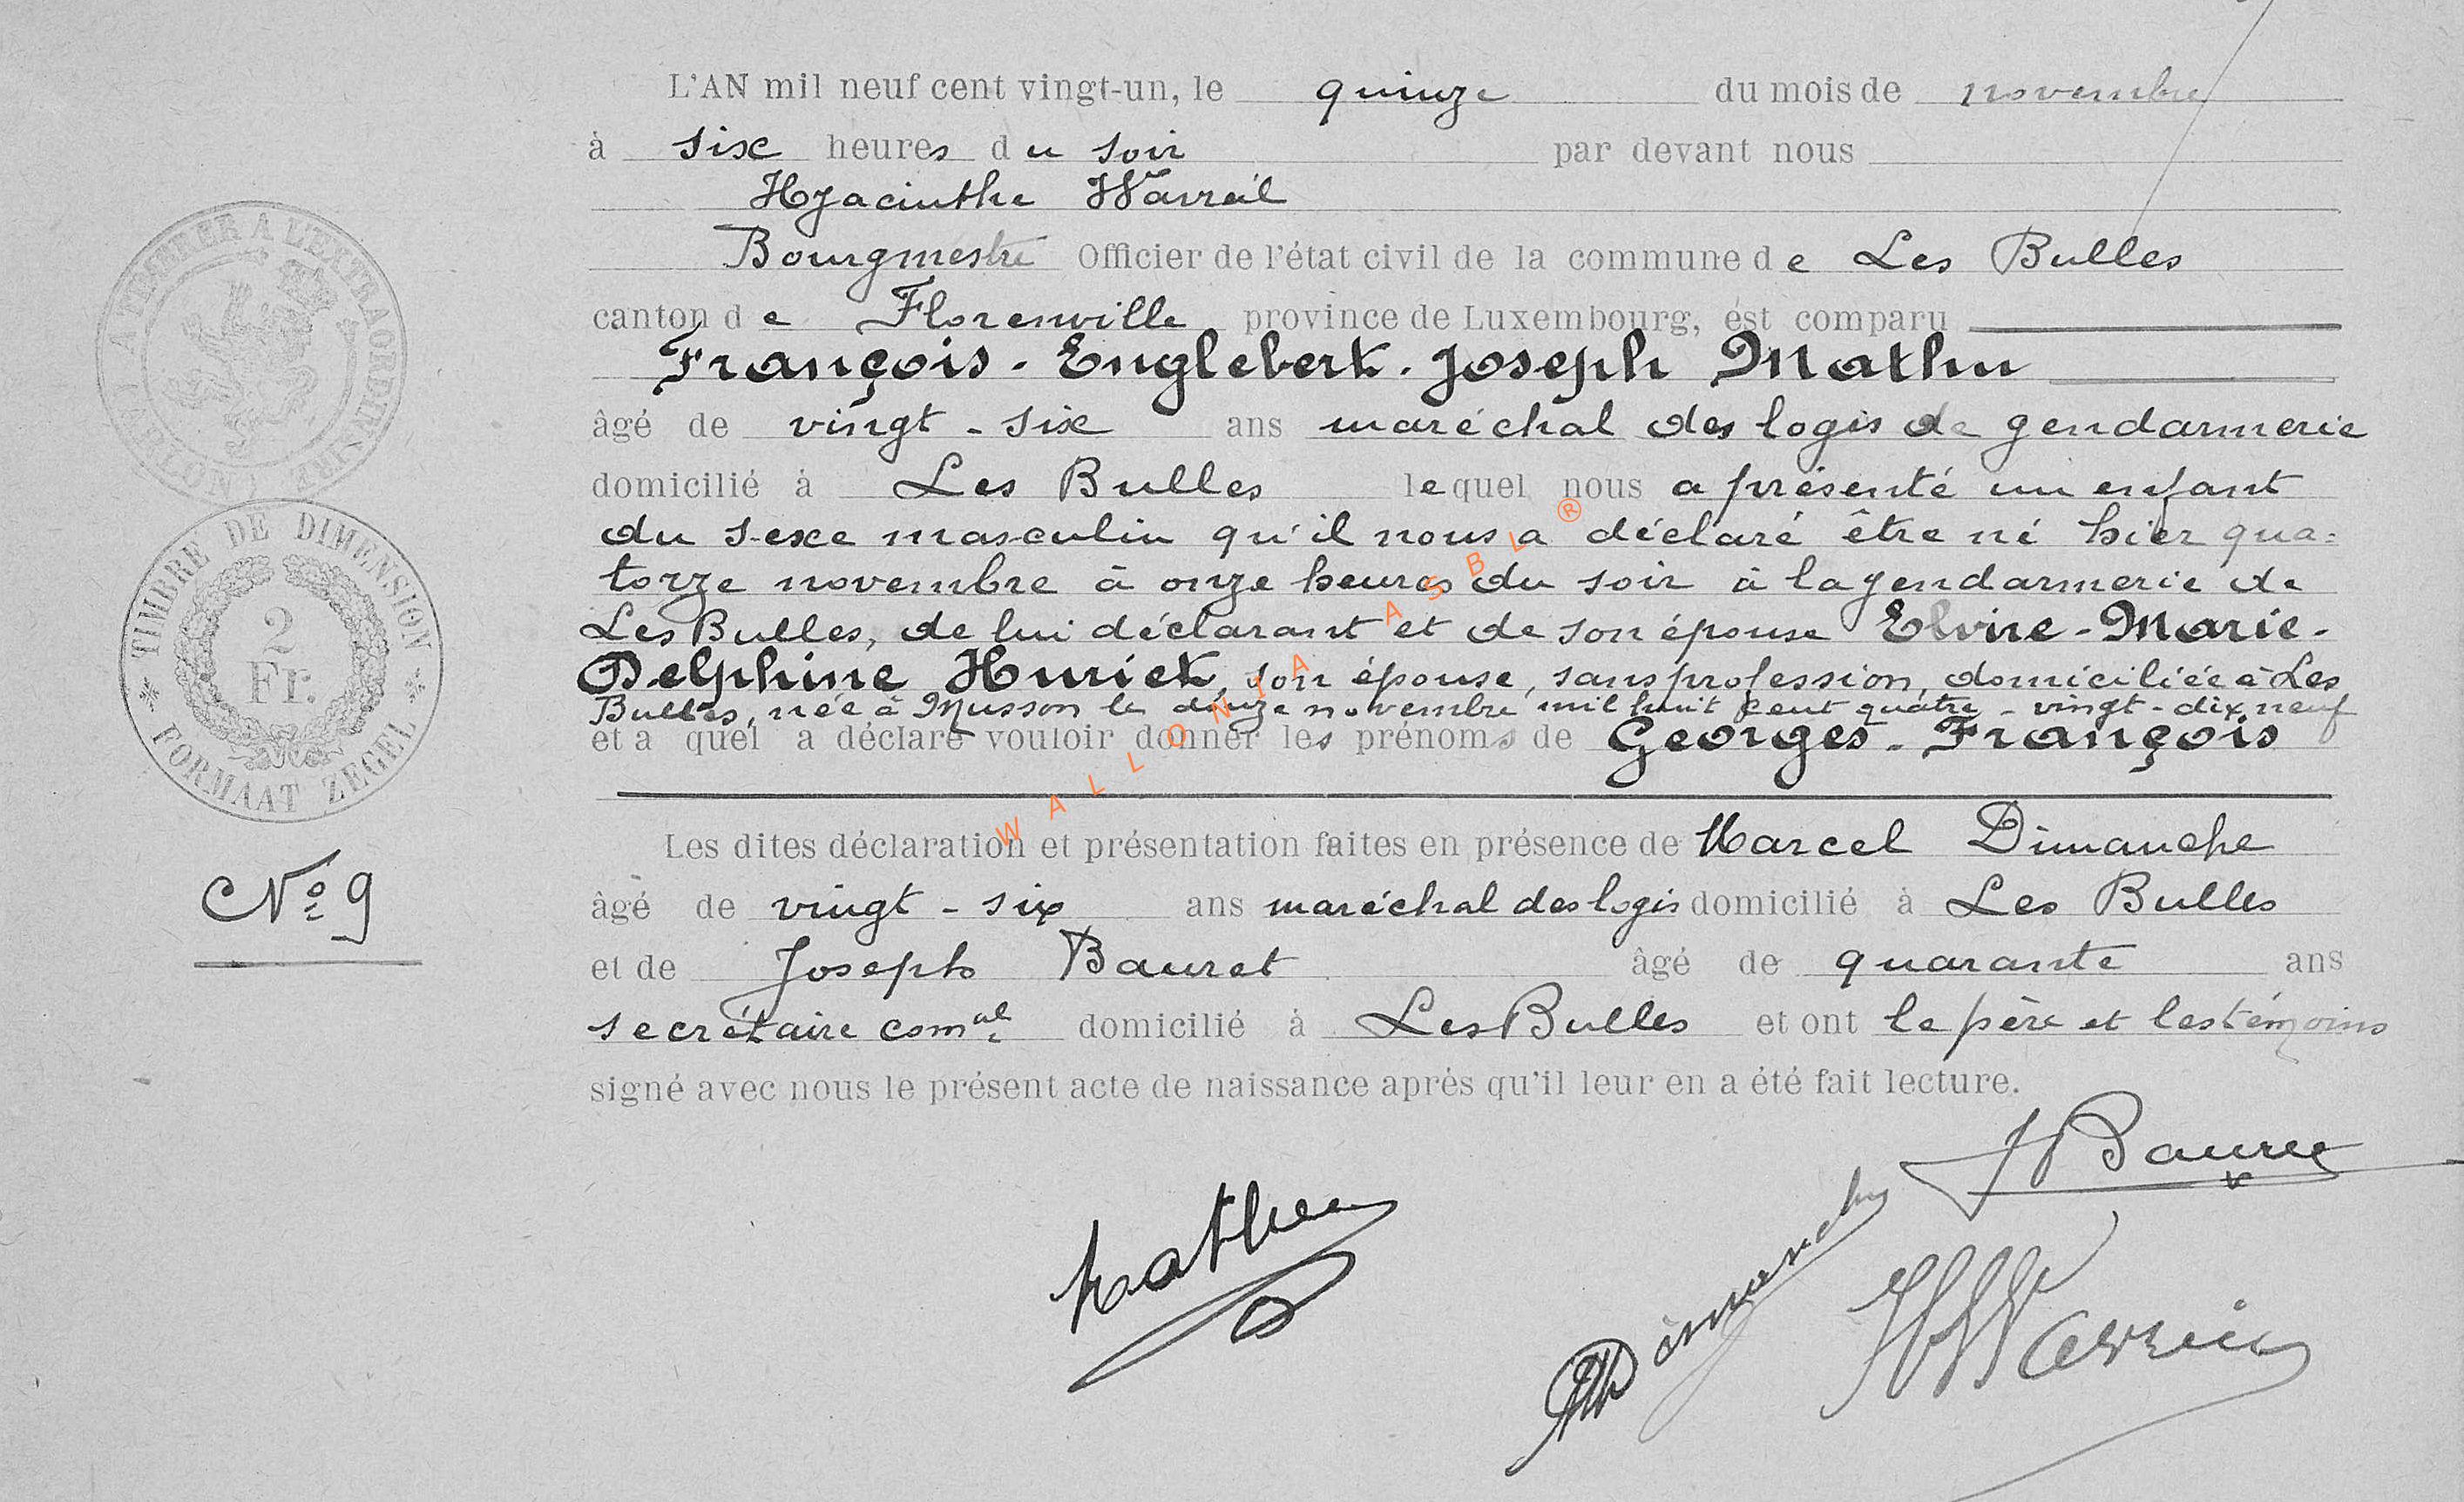 L'AN mil neuf cent vingt-un, le quinze du mois de novembre
à six heures du soir par devant nous
Hyacinthe Wavreil
Bourgmestre Officier de l'état civil de la commune de Les Bulles
canton de Florenville province de Luxembourg, est comparu
François-Englebert-Joseph Mathu
âgé de vingt-six ans maréchal des logis de gendarmerie
domicilié à Les Bulles lequel nous a présenté un enfant
du sexe masculin qu'il nous a déclaré être né hier qua=
torze novembre à onze heures du soir à la gendarmerie de
Les Bulles, de lui déclarant et de son épouse Elvire-Marie-
Delphine Huriet, son épouse, sans profession, domiciliée à Les
Bulles, née à Musson le douze novembre mil huit cent quatre-vingt-dix neuf
et a quel a déclaré vouloir donner les prénoms de Georges-François
Les dites déclaration et présentation faites en présence de Marcel Dimanche
âgé de vingt-six ans maréchal des logis domicilié à Les Bulles
et de Joseph Bauret âgé de quarante ans
secrétaire comal domicilié à Les Bulles et ont le père et les témoins
signé avec nous le présent acte de naissance après qu'il leur en a été fait lecture.
TIMBRE DE DIMENSION
2
Fr.
FORMAAT ZEGEL
No 9
WALLONIA ASBL ®
JBauret
Mathu
Dimanche